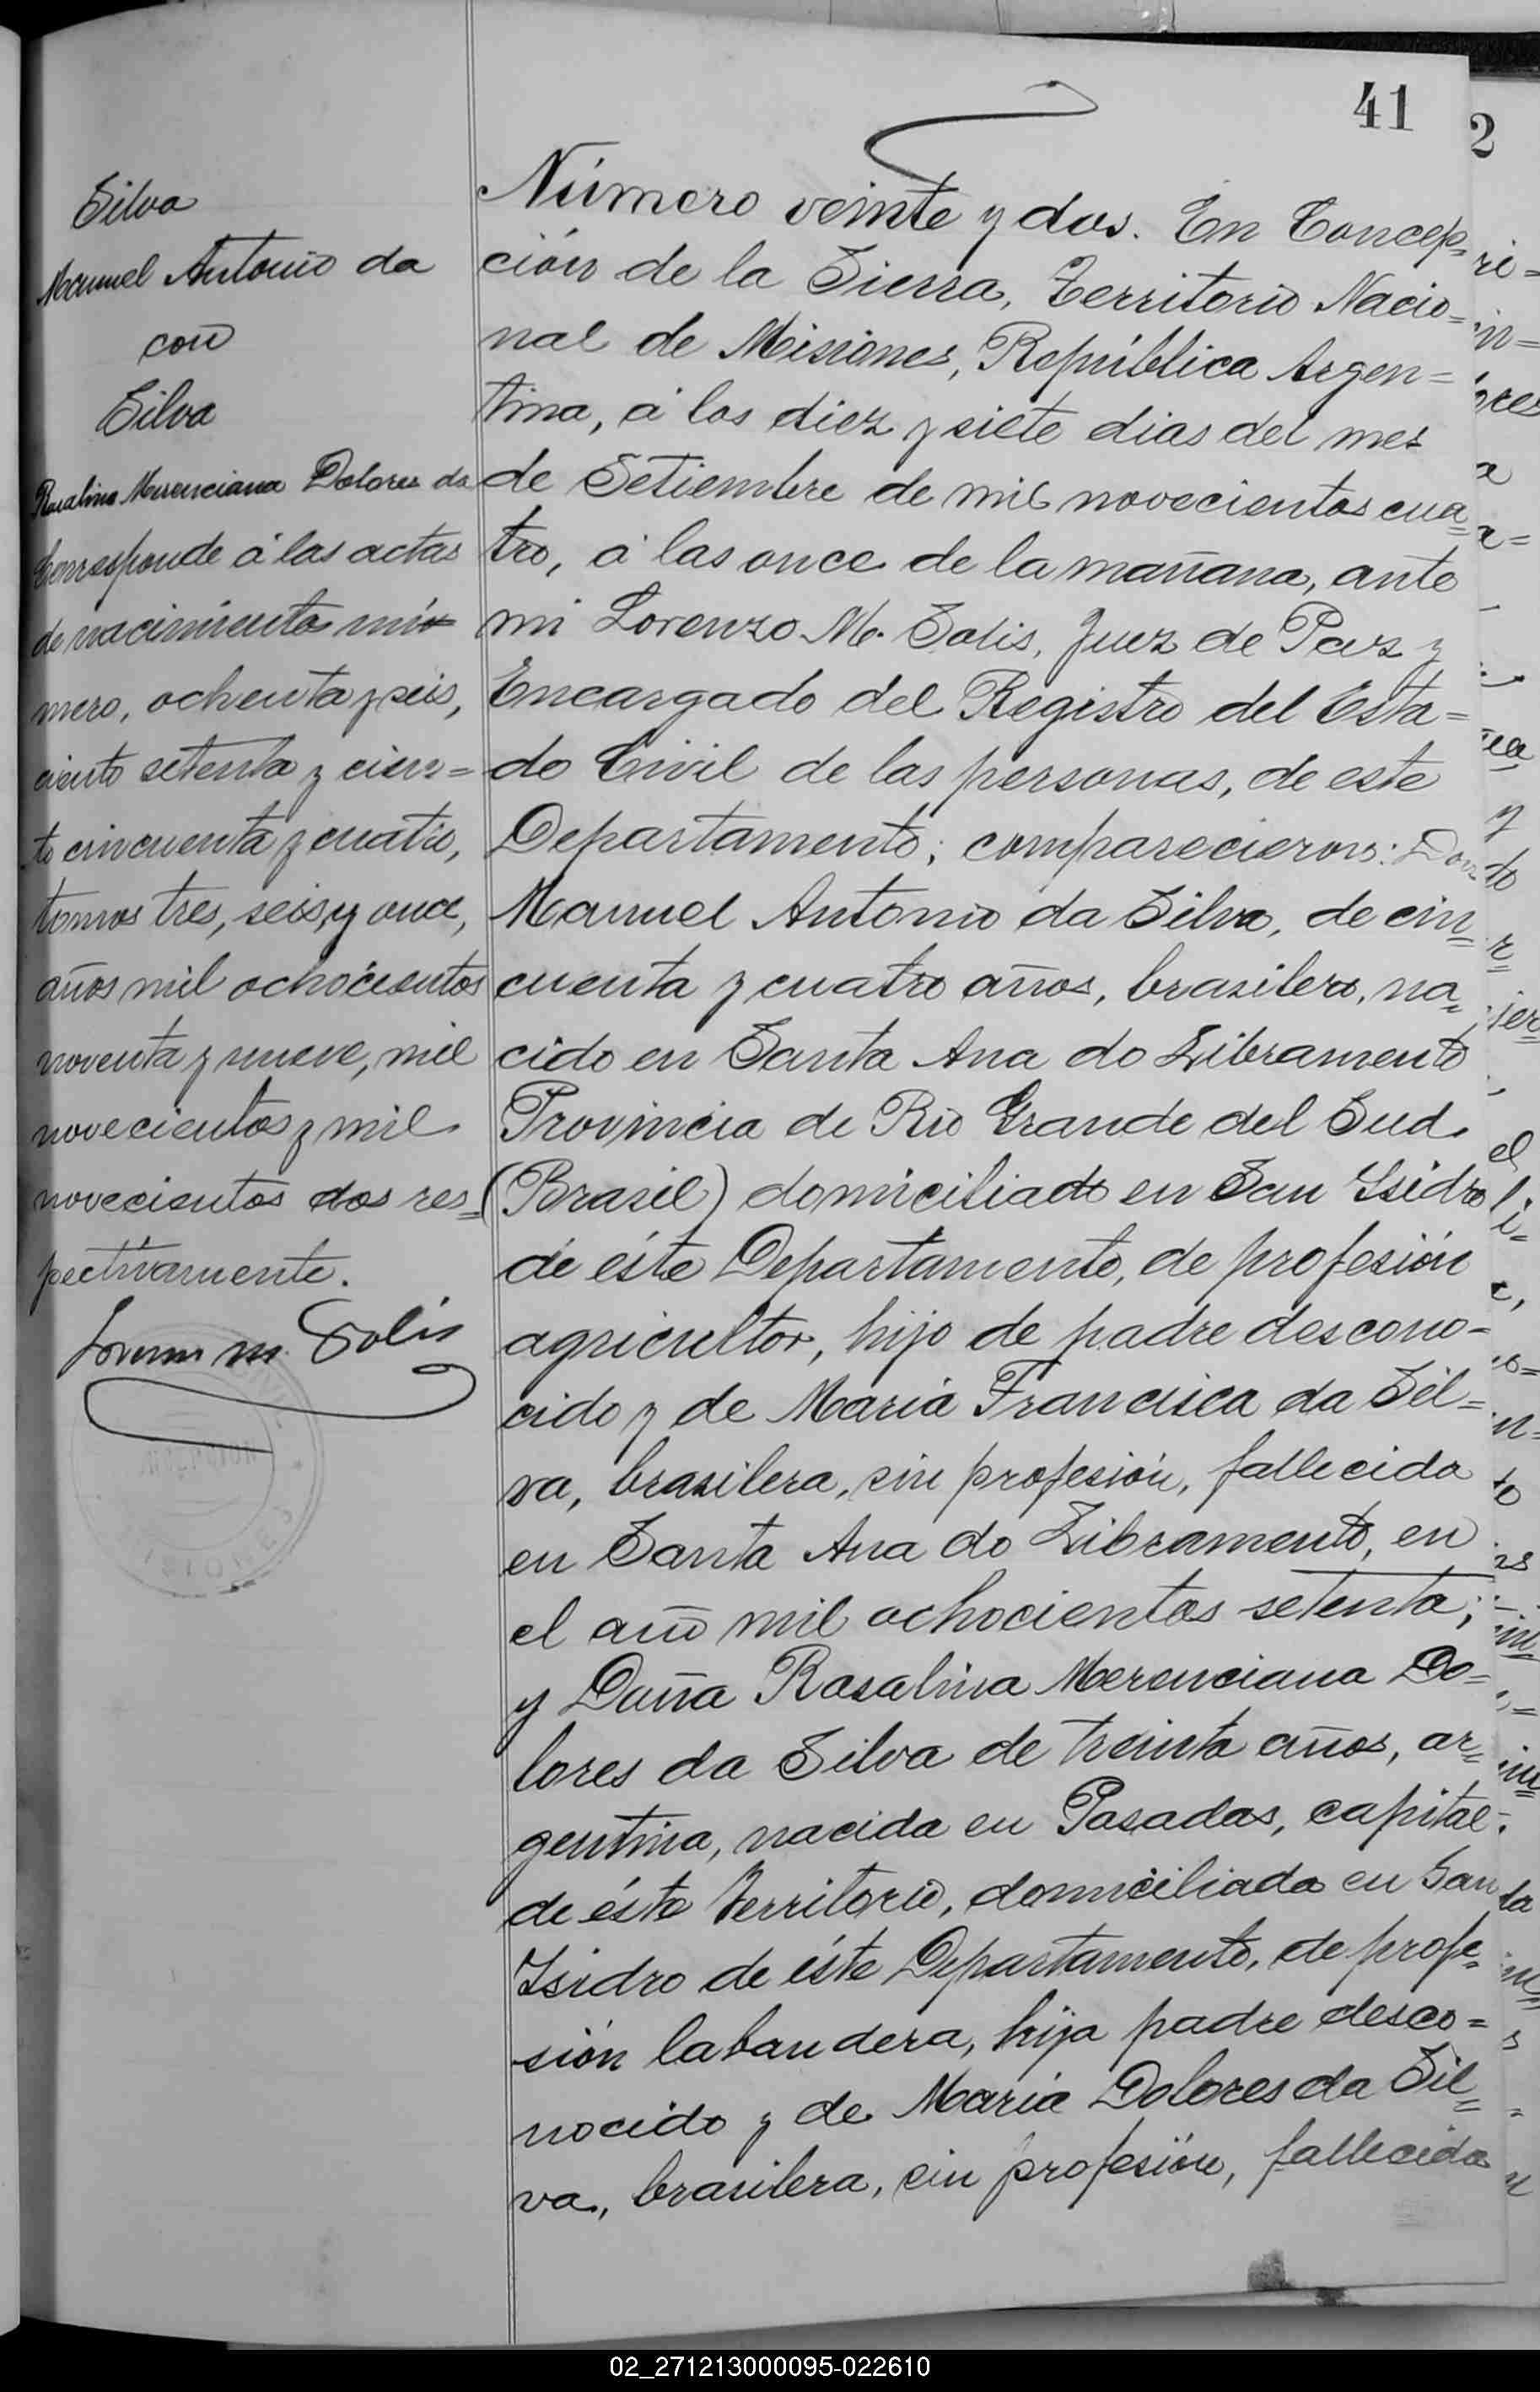 41
Silva
Manuel Antonio da
con
Silva
Rosalina Merenciana Dolores da
Corresponde á las actas
de nacimiento nú-
mero, ochenta y seis,
ciento setenta y cien=
to cincuenta y cuatro,
tomos tres, seis, y once,
años mil ochocientos
noventa y nueve, mil
novecientos y mil
novecientos dos res=
pectivamente.
Lorenzo M. Solis
Número veinte y dos. En Concep=
ción de la Sierra, Territorio Nacio=
nal de Misiones, República Argen=
tina, á los diez y siete dias del mes
de Setiembre de mil novecientos cua=
tro, á las once de la mañana, ante
mi Lorenzo M. Solis, Juez de Paz y
Encargado del Registro del Esta=
do Civil de las personas, de este
Departamento; comparecieron: Don
Manuel Antonio da Silva, de cin=
cuenta y cuatro años, brasilero, na=
cido en Santa Ana do Libramento
Provincia de Rio Grande del Sud.
(Brasil) domiciliado en San Isidro
de éste Departamento, de profesión
agricultor, hijo de padre descono=
cido y de Maria Francisca da Sil=
va, brasilera, sin profesión, fallecida
en Santa Ana do Libramento, en
el año mil ochocientos setenta;
y Doña Rosalina Merenciana Do=
lores da Silva de treinta años, ar=
gentina, nacida en Posadas, capital
de éste Territorio, domiciliada en San
Isidro de éste Departamento, de profe=
sión labandera, hija padre desco=
nocido y de Maria Dolores da Sil=
va, brasilera, sin profesión, fallecida
2
02_271213000095-022610